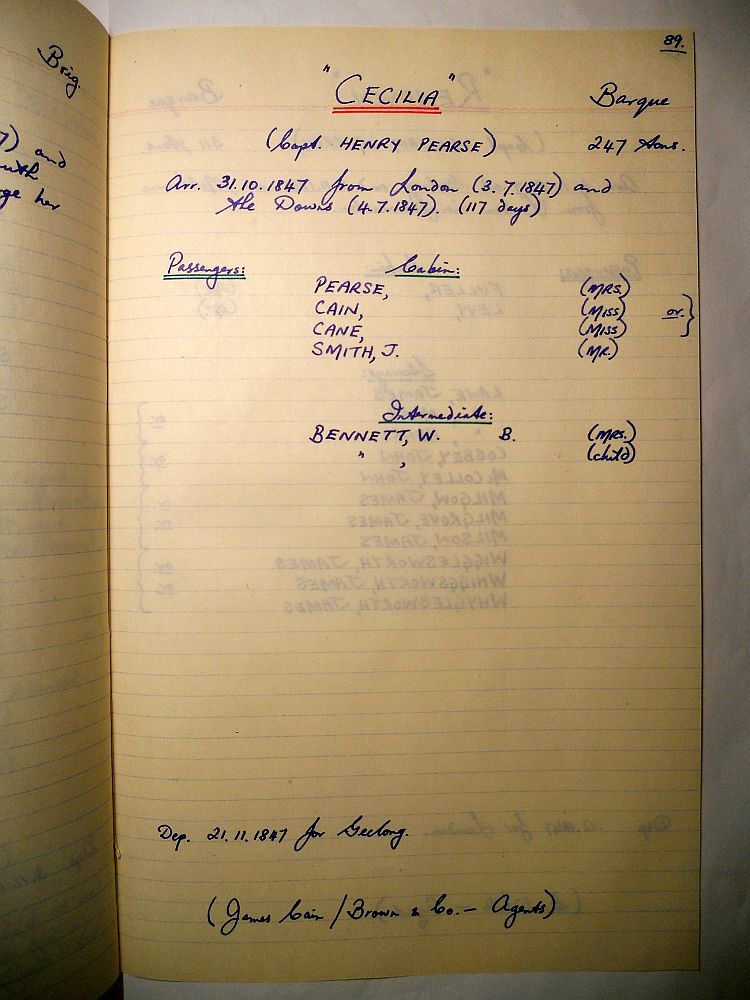 Brig.
and
ge her
89.
"CECILIA" Barque
(Capt. HENRY PEARSE) 247 tons.
Arr. 31.10.1847 from London (3.7.1847) and
the Downs (4.7.1847). (117 days)
Passengers: Cabin:
PEARSE, (MRS)
CAIN, (MISS) or. }
CANE, (MISS)
SMITH, J. (MR.)
Intermediate:
BENNETT, W. B. (MRS.)
" , (child)
Dep. 21.11.1847 for Geelong.
(James Cain / Brown & Co. — Agents)